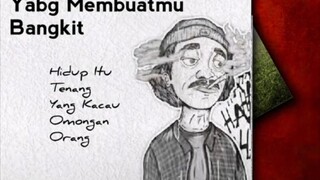 Yabg Membuatmu
Bangkit
Hidup Itu
Tenang
Yang Kacau
Omongan
Orang